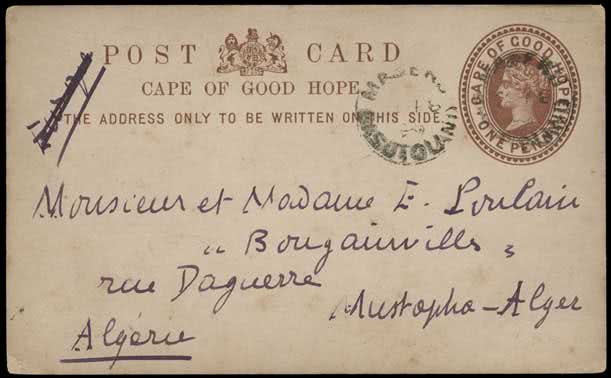 POST CARD
CAPE OF GOOD HOPE.
THE ADDRESS ONLY TO BE WRITTEN ON THIS SIDE.
CAPE OF GOOD HOPE
ONE PENNY
BASUTOLAND
Monsieur et Madame E. Poulain
" Bougainville "
rue Daguerre
Mustapha-Alger
Algérie